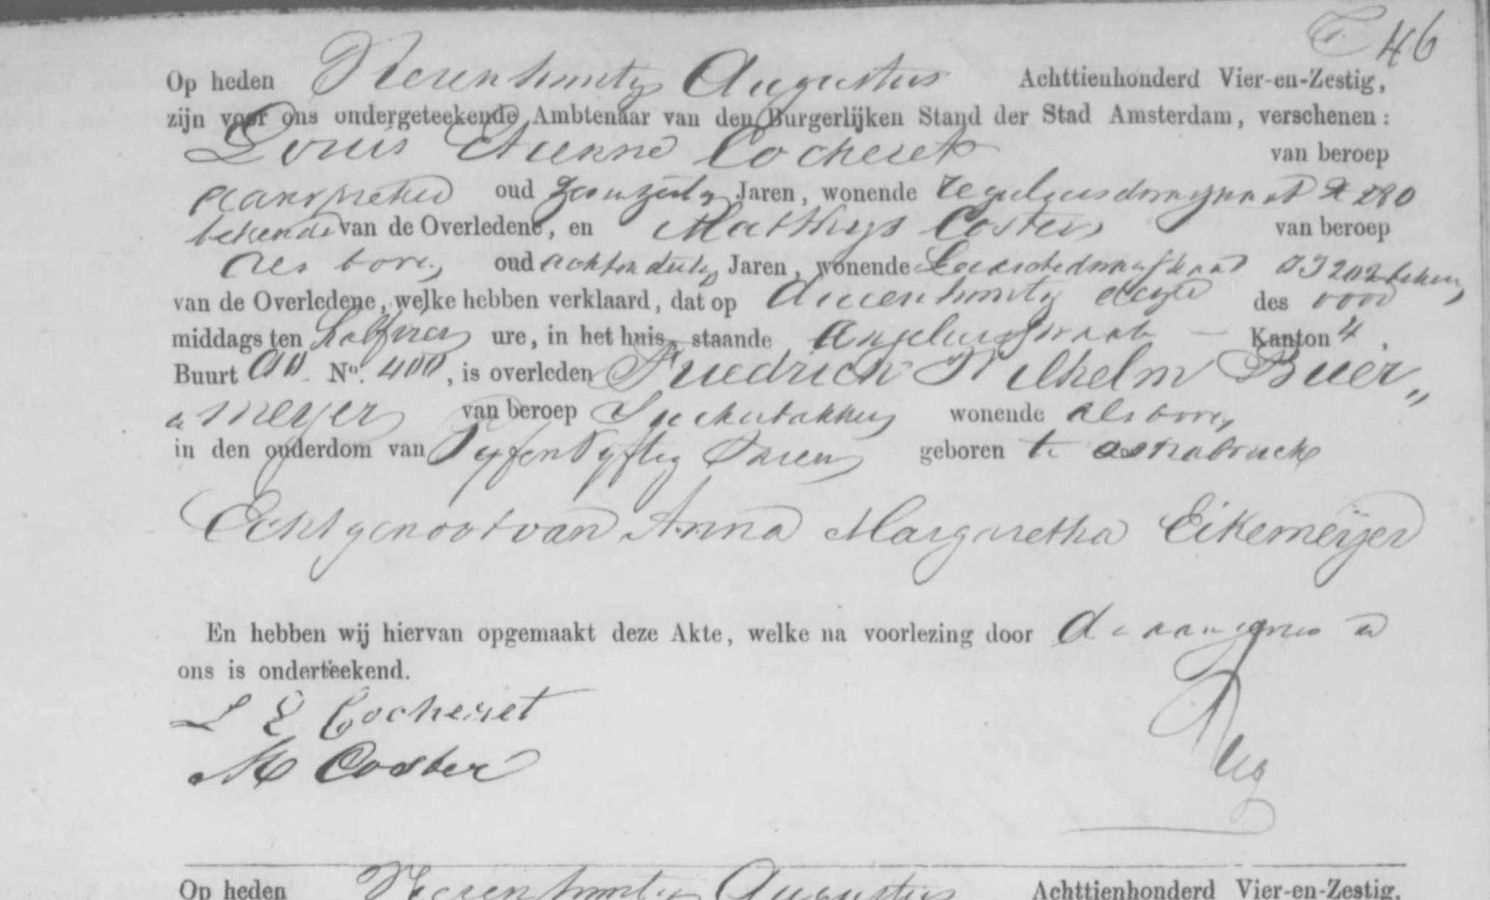 F 46
Op heden Vierentwintig Augustus Achttienhonderd Vier-en-Zestig,
zijn voor ons ondergeteekende Ambtenaar van den Burgerlijken Stand der Stad Amsterdam, verschenen:
Louis Etienne Cocheret van beroep
aanspreker oud Jaren, wonende Reguliersdwarsstraat 280
bekende van de Overledene, en Matthijs Coster van beroep
als boven, oud achtendertig Jaren, wonende Leidschedwarsstraat bekende
van de Overledene, welke hebben verklaard, dat op tweeentwintig dezer des voor
middags ten half vier ure, in het huis, staande Angeliersstraat — Kanton 4,
Buurt No. 400, is overleden Friedrich Wilhelm Buer„
meyer van beroep Suikerbakker wonende als boven,
in den ouderdom van Vyfenvyftig Jaren geboren te Osnabruck
Echtgenoot van Anna Margaretha Eikemeijer
En hebben wij hiervan opgemaakt deze Akte, welke na voorlezing door de aangevers en
ons is onderteekend.
L E Cocheret
M Coster
Op heden Vierentwintig Augustus Achttienhonderd Vier-en-Zestig,